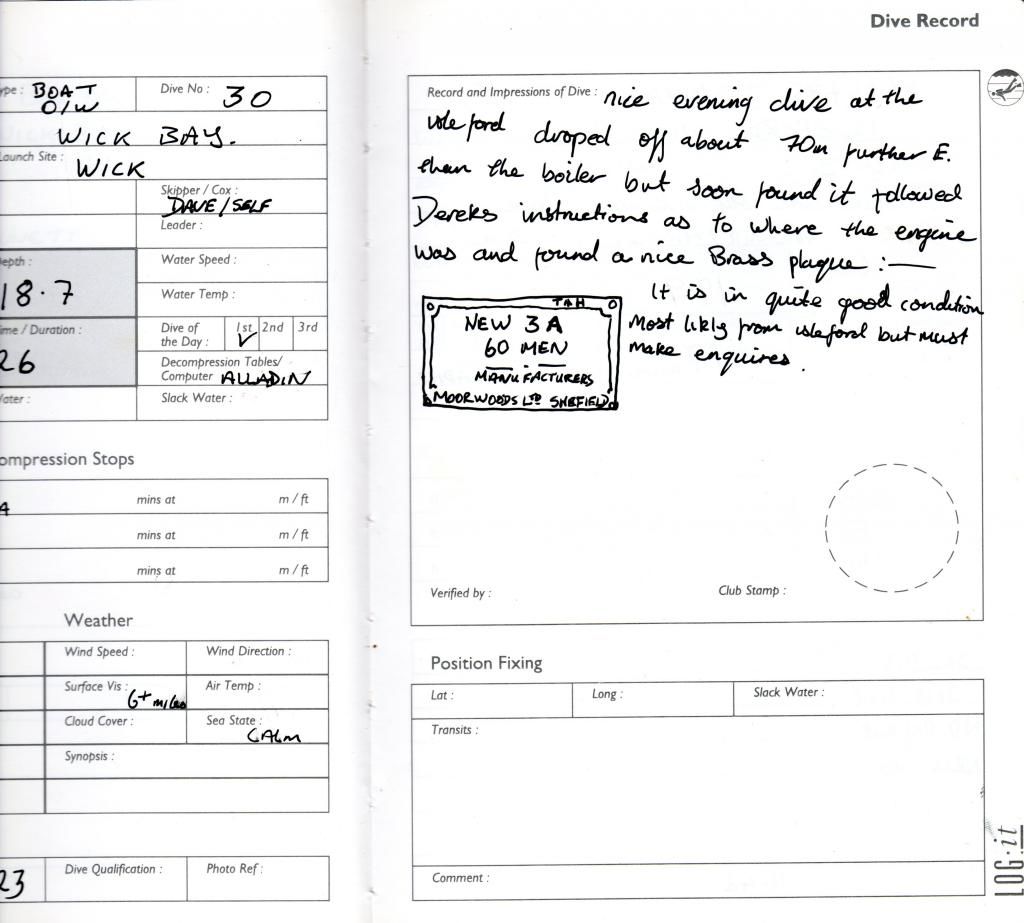 Dive Record
ype : BOAT O/W
Dive No : 30
WICK BAY.
Launch Site : WICK
Skipper / Cox : DAVE/SELF
Leader :
epth : 18.7
Water Speed :
Water Temp :
me / Duration : 26
Dive of the Day : 1st ✓ 2nd 3rd
Decompression Tables/
Computer ALLADIN
ater :
Slack Water :
ompression Stops
mins at m / ft
mins at m / ft
mins at m / ft
Weather
Wind Speed :
Wind Direction :
Surface Vis : 6+ miles
Air Temp :
Cloud Cover :
Sea State : CALM
Synopsis :
23
Dive Qualification :
Photo Ref :
Record and Impressions of Dive : nice evening dive at the
isleford droped off about 70m further E.
than the boiler but soon found it followed
Dereks instructions as to where the engine
was and found a nice Brass plaque :—
T&H
NEW 3A
60 MEN
MANUFACTURERS
MOORWOODS LTD SHEFIELD
It is in quite good condition
Most likly from isleford but must
make enquires.
Verified by :
Club Stamp :
Position Fixing
Lat :
Long :
Slack Water :
Transits :
Comment :
LOG·it